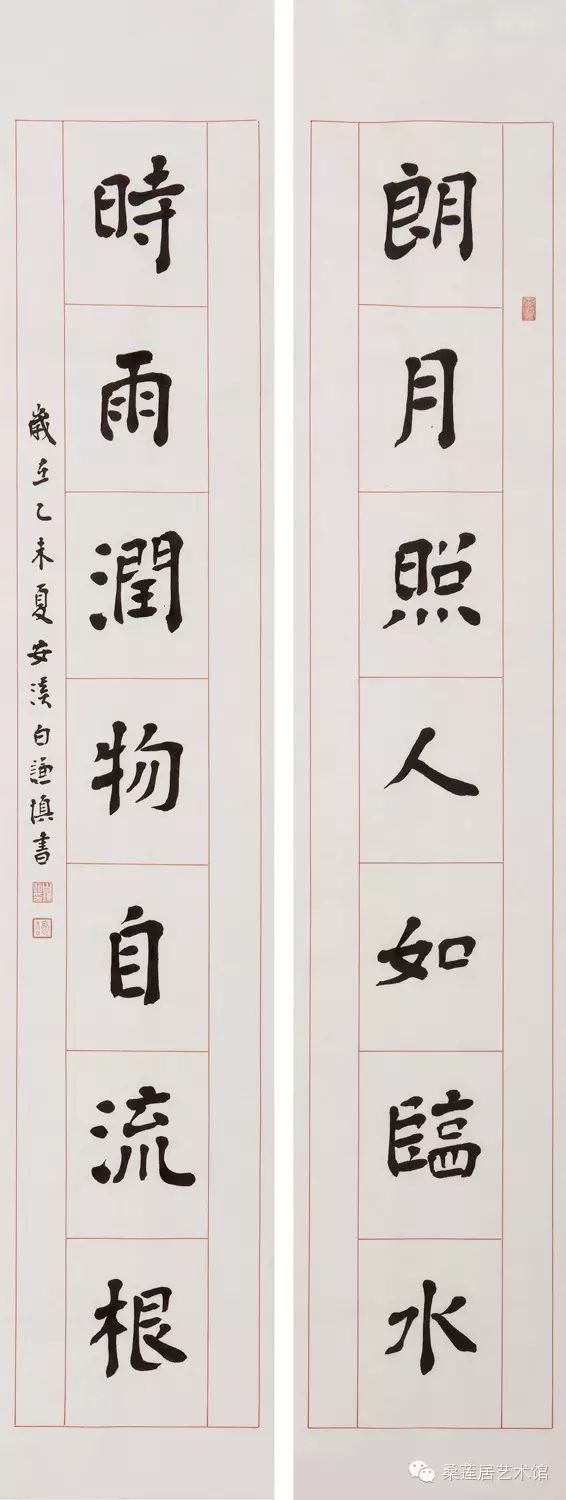 朗月照人如臨水
時雨潤物自流根
歲在乙未夏安溪白謙慎書
桑莲居艺术馆